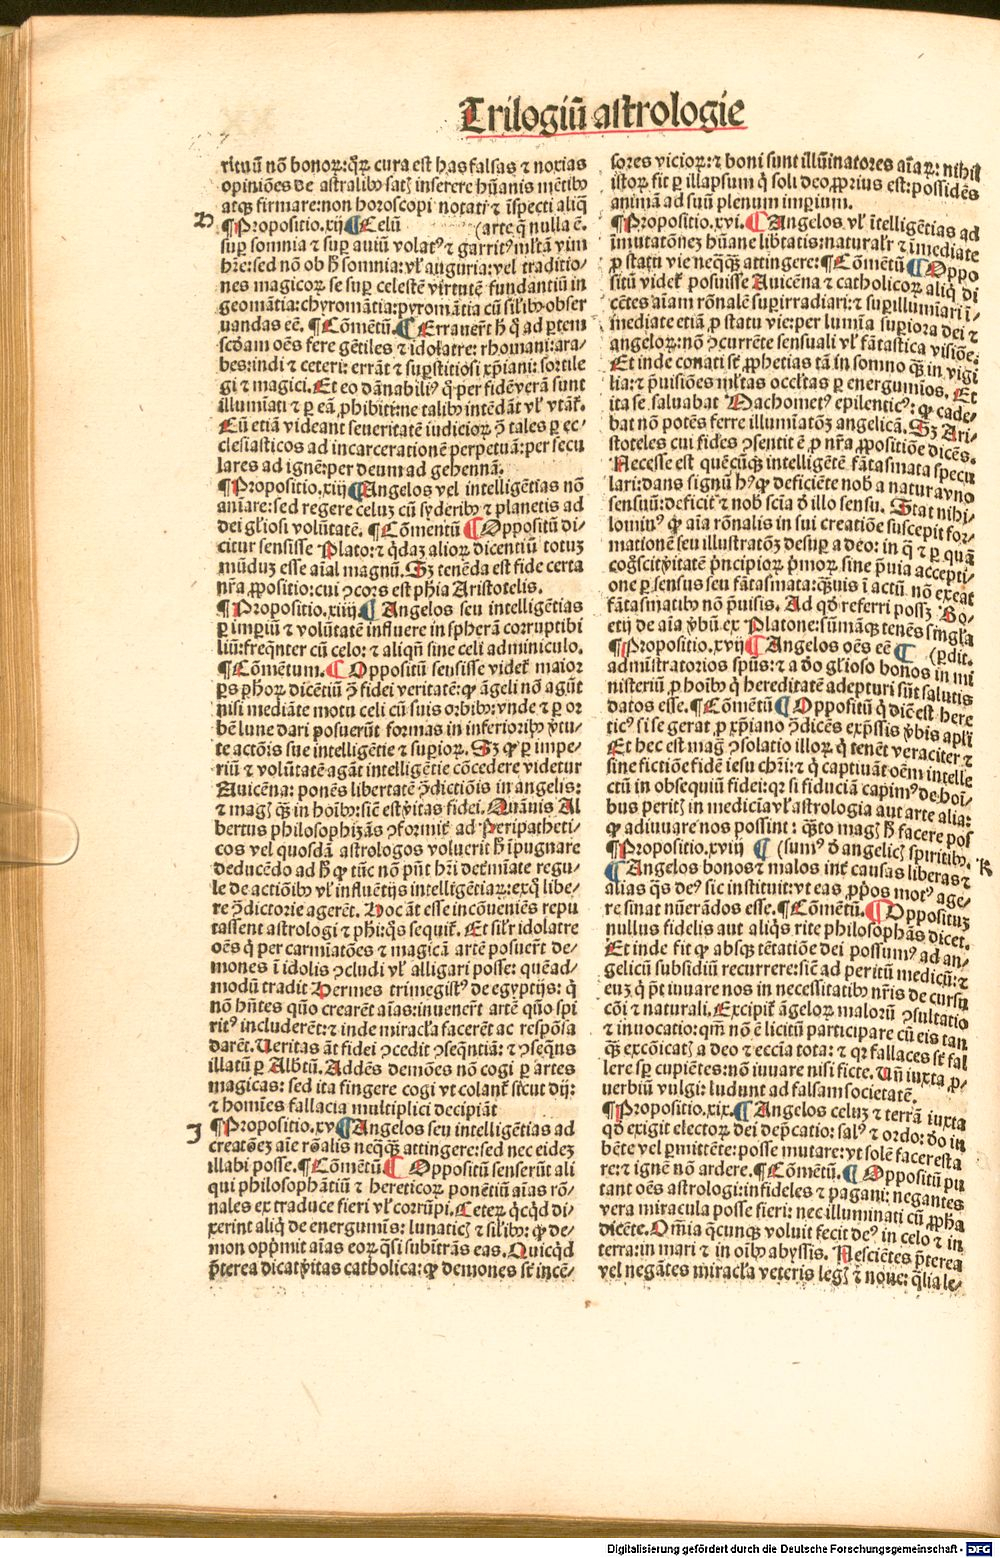 Trilogiū astrologie
rituū nō bonoꝝ: q̄ꝝ cura est has falsas ⁊ noxias
opiniões de astralibꝰ satꝫ inserere hūanis mētibꝰ
atqꝫ firmare: non horoscopi notati ⁊ īspecti aliq̄
H
¶ Propositio.xij ¶ Celū (arte q̄ nulla ē.
suꝑ somnia ⁊ suꝑ auiū volatꝰ ⁊ garritꝰ mltā vim
hr̄e: sed nō ob h̄ somnia: vl̓ auguria: vel traditio⸗
nes magicoꝝ se suꝑ celestē virtutē fundantiū in
geomātia: chyromātia: pyromātia cū sil̓ibꝰ obser
uandas eē. ¶ Cōmētū. ¶ Errauer̄t h̄ q̇ ad ꝑtem
scd̓am oēs fere gētiles ⁊ idolatre: rhomani: ara⸗
bes: indi ⁊ ceteri: errāt ⁊ suꝑstitiosi xp̄iani: sortile
gi ⁊ magici. Et eo dānabiliꝰ q̄ per fidē verā sunt
illumiati ⁊ ꝑ eā ꝓhibiti: ne talibꝰ intēdāt vl̓ vtāt̄.
Cū etiā videant seueritatē iudicioꝝ ꝯ̄ tales ꝑ ec⸗
clesiasticos ad incarcerationē perpetuā: per secu
lares ad ignē: per deum ad gehennā.
¶ Propositio.xiij ¶ Angelos vel intelligētias nō
aniare: sed regere celuꝫ cū syderibꝰ ⁊ planetis ad
dei gl̓iosi volūtatē. ¶ Cōmentū ¶ Oppositū di⸗
citur sensisse Plato: ⁊ q̇daꝫ alioꝝ dicentiū totuꝫ
mūduꝫ esse aīal magnū. Sꝫ tenēda est fide certa
nr̄a ꝓpositio: cui ꝯcors est ph̄ia Aristotelis.
¶ Propositio.xiiij ¶ Angelos seu intelligētias
ꝑ imꝑiū ⁊ volūtatē influere in spherā corruptibi
liū: freq̄nter cū celo: ⁊ aliqn̄ sine celi adminiculo.
¶ Cōmētum. ¶ Oppositū sensisse videt̄ maior
ꝑs ph̓oꝝ dicētiū ꝯ̄ fidei veritatē: ꝙ āgeli nō agūt
nisi mediāte motu celi cū suis orbibꝰ: vnde ⁊ ꝑ or
bē lune dari posuerūt formas in inferioribꝰ v̓tu⸗
te actōis sue intelligētie ⁊ suꝑioꝝ. Sꝫ ꝙ ꝑ impe⸗
riū ⁊ volūtatē agāt intelligētie cōcedere videtur
Auicēna: ponēs libertatē ꝯ̄dictiōis in angelis:
⁊ magꝭ q̄ꝫ in hoībꝰ: sic̄ est v̓itas fidei. Quāuis Al
bertus philosophizās ꝯformit̓ ad Peripatheti⸗
cos vel quosdā astrologos voluerit h̄ īpugnare
deducēdo ad h̄ ꝙ tūc nō pn̄t hr̄i determīate regu⸗
le de actiōibꝰ vl̓ influētijs intelligētiaꝝ: exq̄ libe⸗
re ꝯ̄dictorie agerēt. Hoc āt esse incōueniēs repu
tassent astrologi ⁊ ph̓i: q̇s sequit̄. Et sil̓r idolatre
oēs q̇ per carmīatōes ⁊ magicā artē posuer̄t de⸗
mones ī idolis ꝯcludi vl̓ alligari posse: quēad⸗
modū tradit Hermes trimegistꝰ de egyptijs: q̇
nō hn̄tes quō crearēt aīas: inuener̄t artē quō spi
ritꝰ includerēt: ⁊ inde miracl̓a facerēt ac respōsa
darēt. Veritas āt fidei ꝯcedit ꝯseq̄ntiā: ⁊ ꝯseq̄ns
illatū ꝑ Alb̓tū. Addēs demōes nō cogi ꝑ artes
magicas: sed ita fingere cogi vt colant̄ sicut dij:
⁊ homīes fallacia multiplici decipiāt
J
¶ Propositio.xv ¶ Angelos seu intelligētias ad
creatōeꝫ aīe rōalis neq̄q̄ꝫ attingere: sed nec eideꝫ
illabi posse. ¶ Cōmētū ¶ Oppositū senserūt ali
qui philosophātiū ⁊ hereticoꝝ ponētiū aīas rō⸗
nales ex traduce fieri vl̓ corrūpi. Ceteꝝ q̇cq̇d di⸗
xerint aliq̇ de energumīs: lunaticꝭ ⁊ sil̓ibꝰ: ꝙ de⸗
mon opp̄mit aīas eoꝝ q̄si subītrās eas. Quicq̇d
p̄terea dicat v̓itas catholica: ꝙ demones sēt incē⸗
sores vicioꝝ: ⁊ boni sunt illūinatores aīaꝝ: nihil
istoꝝ fit ꝑ illapsum q̇ soli deo ꝓprius est: possidēs
animā ad suū plenum imperium.
¶ Propositio.xvi. ¶ Angelos vl̓ ītelligētias ad
īmutatōneꝫ hūane lib̓tatis: natural̓r ⁊ īmediate
ꝓ statu vie neq̄q̄ꝫ attingere: ¶ Cōmētū ¶ Oppo
sitū videt̄ posuisse Auicēna ⁊ catholicoꝝ aliq̇ di
cētes aīam rōnalē supirradiari: ⁊ superillumiari ī⸗
mediate etiā ꝓ statu vie: per lumīa superiora dei ⁊
angeloꝝ: nō ꝯcurrēte sensuali vl̓ fātastica visiōe.
Et inde conati sēt ꝓphetias tā in somno q̄ꝫ in vigi
lia: ⁊ p̄uisiōes ml̓tas occl̓tas ꝑ energumios. Et
ita se saluabat Machometꝰ epilenticꝰ: ꝙ cade⸗
bat nō potēs ferre illumiatōꝫ angelicā. Sꝫ Ari⸗
stoteles cui fides ꝯsentit ē ꝓ nr̄a ꝓpositiōe dicēs.
Necesse est quēcūqꝫ intelligētē fātasmata specu
lari: dans signū hꝰ ꝙ deficiēte nob̓ a natura vno
sensuū: deficit̄ ⁊ nob̓ scīa d̓ illo sensu. Stat nihi⸗
lominꝰ ꝙ aīa rōnalis in sui creatiōe suscepit for⸗
mationē seu illustratōꝫ desuꝑ a deo: in q̄ ⁊ ꝑ quā
cogscitiv̓itatē p̄ncipioꝝ p̄moꝝ sine p̄uia accepti⸗
one ꝑ sensus seu fātasmata: q̄ꝫuis ī actū nō exeat
fātasmatibꝰ nō p̄uisis. Ad qd̓ referri possꝫ Bo⸗
etij de aīa v̓bū ex Platone: sūmāqꝫ tenēs singl̓a
¶ Propositio.xvij ¶ Angelos oēs eē ¶ (ꝑdit.
admīstratorios spūs: ⁊ a d̓o gl̓ioso bonos in mi
nisteriū ꝓ hoībꝰ q̇ hereditatē adepturi sūt salutis
datos esse. ¶ Cōmētū ¶ Oppositū q̇ dic̄ est here
ticꝰ si se gerat ꝓ xp̄iano ꝯ̄dicēs exp̄ssis v̓bis apl̓i
Et hec est maḡ ꝯsolatio illoꝝ q̇ tenēt veraciter ⁊
sine fictiōe fidē iesu chr̄i: ⁊ q̇ captiuāt oēm intelle
ctū in obsequiū fidei: qꝛ si fiduciā capimꝰ de hoī⸗
bus peritꝭ in medicīa vl̓ astrologia aut arte alia:
ꝙ adiuuare nos possint: q̄to magꝭ h̄ facere pos
¶ Propositio.xviij ¶ (sumꝰ d̓ angelicꝭ spiritibꝰ.
K
¶ Angelos bonos ⁊ malos int̓ causas liberas ⁊
alias q̄s deꝰ sic instituit: vt eas ꝓp̓os motꝰ age⸗
re sinat nūerādos esse. ¶ Cōmētū. ¶ Oppositūꝫ
nullus fidelis aut aliq̇s rite philosophās dicet.
Et inde fit ꝙ absqꝫ tētatiōe dei possumꝰ ad an⸗
gelicū subsidiū recurrere: sic̄ ad peritū medicū: ⁊
euꝫ q̇ pōt iuuare nos in necessitatibꝰ nr̄is de cursu
cōi ⁊ naturali. Excipit̄ āgeloꝝ maloꝝ ꝯsultatio
⁊ inuocatio: qm̄ nō ē licitū participare cū eis tan
q̄ꝫ excōicatꝭ a deo ⁊ ecc̄ia tota: ⁊ qꝛ fallaces sēt fal
lere sꝑ cupiētes: nō iuuare nisi ficte. Vn̄ iuxta ꝓ⸗
uerbiū vulgi: ludunt ad falsam societatē.
¶ Propositio.xix. ¶ Angelos celuꝫ ⁊ terrā iuxta
qd̓ exigit electoꝝ dei dep̄catio: salꝰ ⁊ ordo: d̓o iu
bēte vel ꝑmittēte: posse mutare: vt solē facere sta
re: ⁊ ignē nō ardere. ¶ Cōmētū. ¶ Oppositū pu
tant oēs astrologi: infideles ⁊ pagani: negantes
vera miracula posse fieri: nec illuminati cū ꝓpha
dicēte. Om̄ia q̄cunqꝫ voluit fecit deꝰ in celo ⁊ in
terra: in mari ⁊ in oībꝰ abyssis. Nesciētes p̄terea
vel negātes miracl̓a veteris legꝭ ⁊ noue: q̄lia le⸗
Digitalisierung gefördert durch die Deutsche Forschungsgemeinschaft - DFG